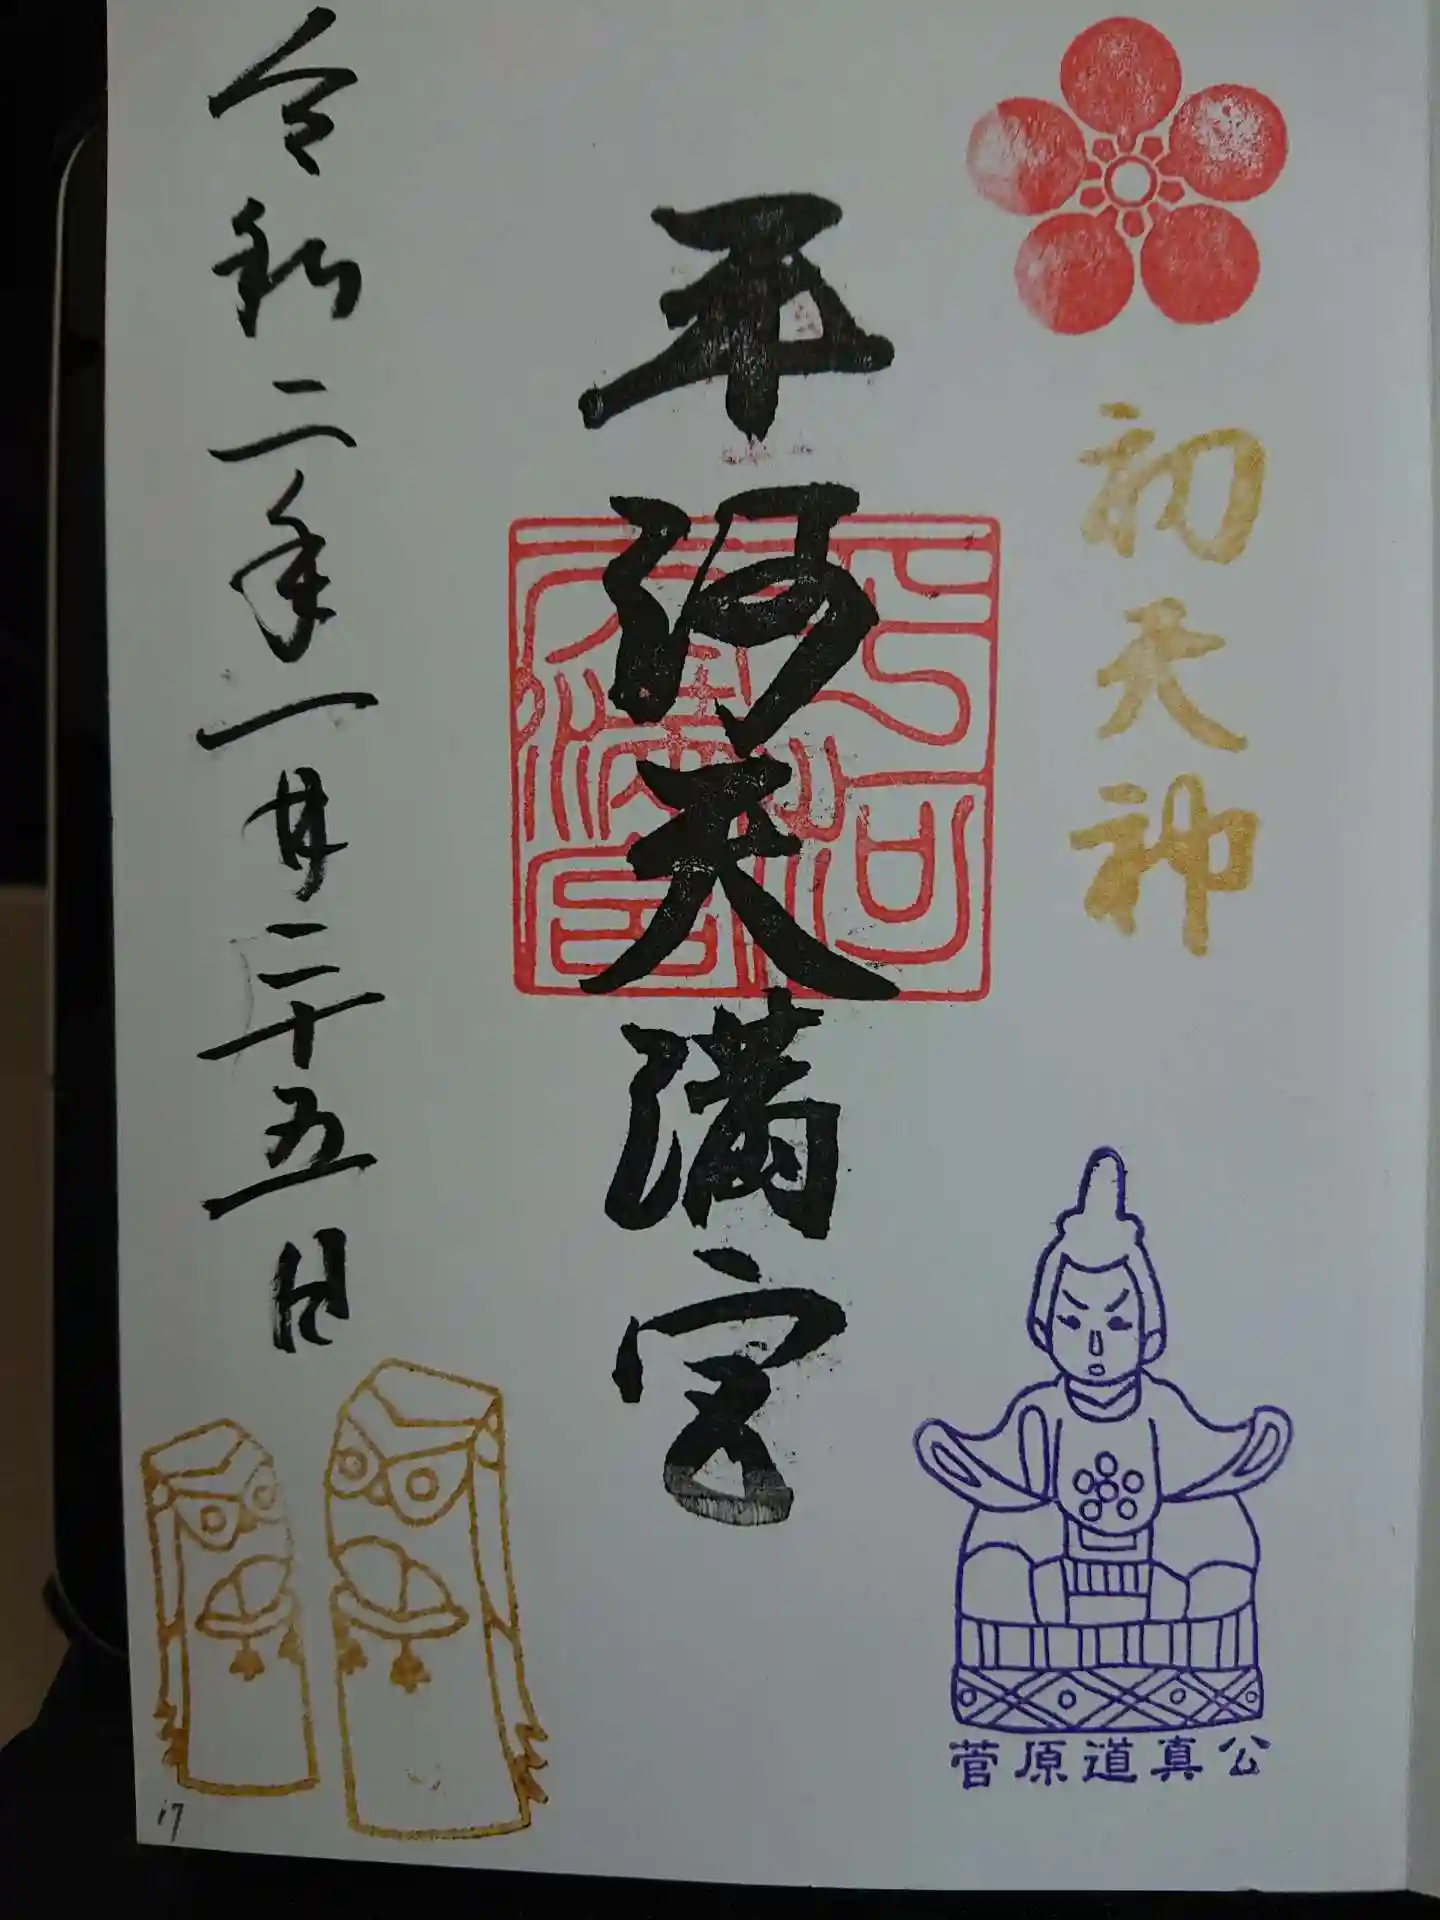 初天神
平河天満宮
令和二年一月二十五日
菅原道真公
17